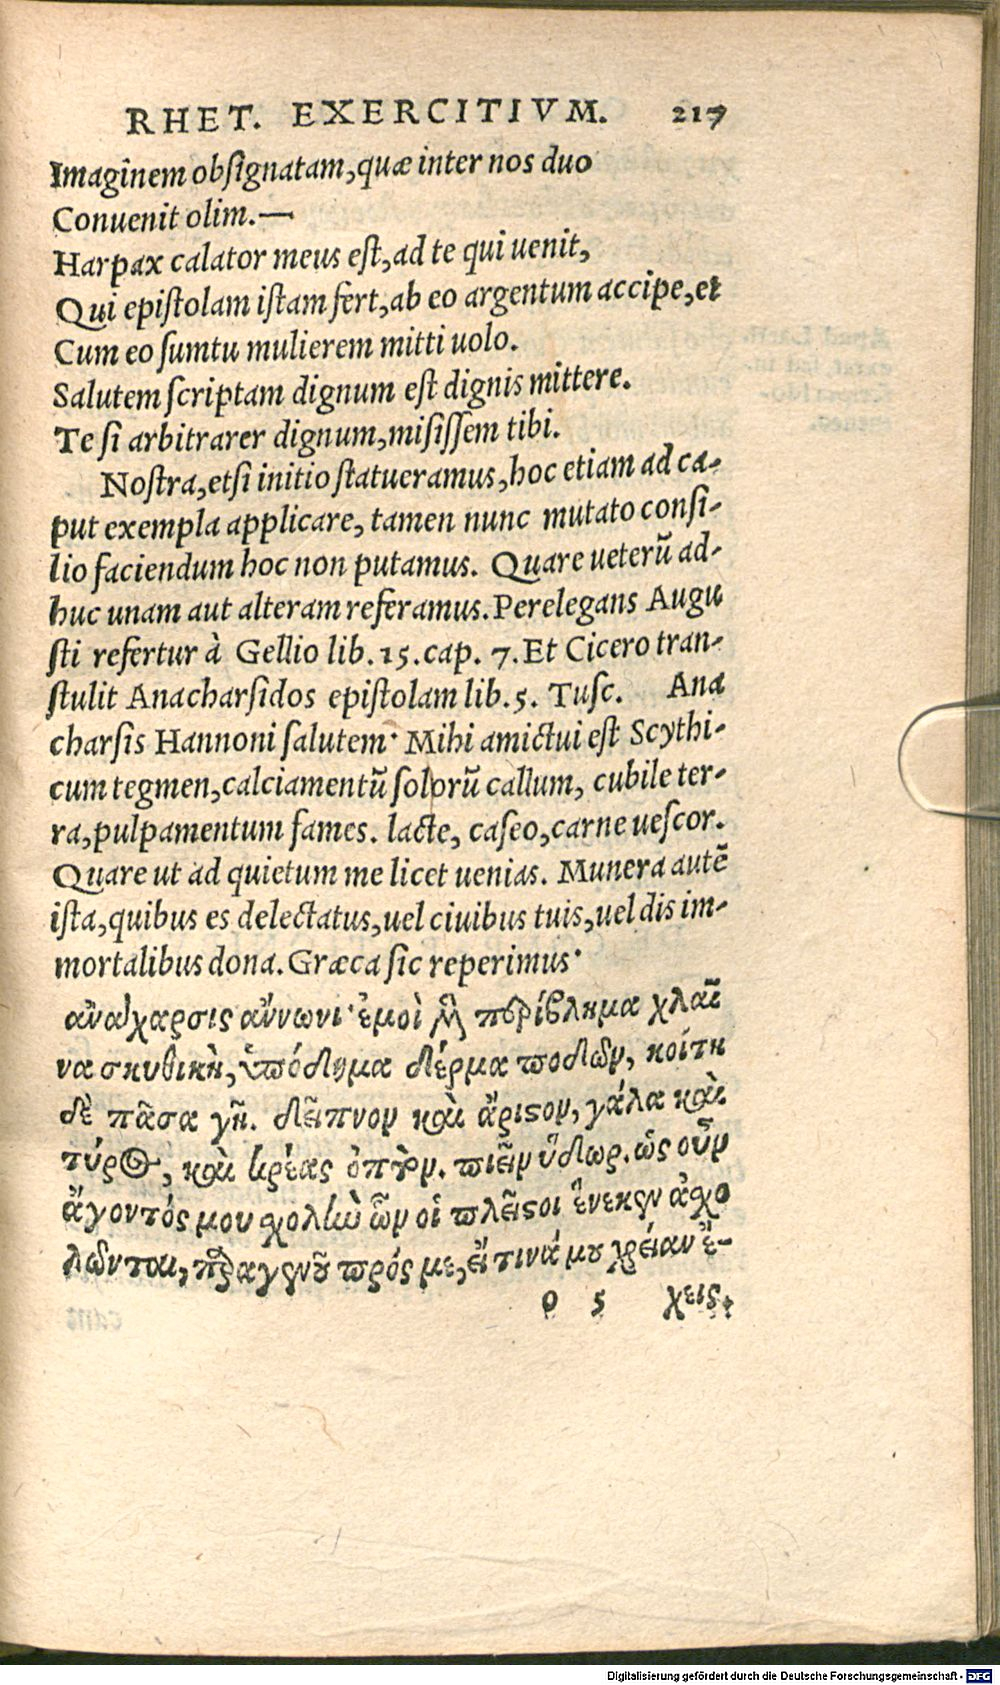 RHET. EXERCITIVM. 217
Imaginem obsignatam, quæ inter nos duo
Conuenit olim.—
Harpax calator meus est, ad te qui uenit,
Qui epistolam istam fert, ab eo argentum accipe, et
Cum eo sumtu mulierem mitti uolo.
Salutem scriptam dignum est dignis mittere.
Te si arbitrarer dignum, misissem tibi.
Nostra, etsi initio statueramus, hoc etiam ad ca-
put exempla applicare, tamen nunc mutato consi-
lio faciendum hoc non putamus. Quare ueterũ ad-
huc unam aut alteram referamus. Perelegans Augu
sti refertur à Gellio lib. 15. cap. 7. Et Cicero tran-
stulit Anacharsidos epistolam lib. 5. Tusc. Ana
charsis Hannoni salutem· Mihi amictui est Scythi-
cum tegmen, calciamentũ solorũ callum, cubile ter-
ra, pulpamentum fames. lacte, caseo, carne uescor.
Quare ut ad quietum me licet uenias. Munera autẽ
ista, quibus es delectatus, uel ciuibus tuis, uel dis im-
mortalibus dona. Græca sic reperimus·
ἀνάχαρσις ἄννωνι· ἐμοὶ μὲν περίβλημα χλαῖ
να σκυθικὴ, ὑπόδημα δέρμα ποδῶν, κοίτη
δὲ πᾶσα γῆ. δεῖπνον καὶ ἄριστον, γάλα καὶ
τύρος, καὶ κρέας ὀπτὸν. πιεῖν ὕδωρ. ὡς οὖν
ἄγοντός μου χολὴν ὧν οἱ πλεῖστοι ἕνεκεν ἀχο
λῶνται, παραγενοῦ πρός με, εἴ τινά μου χρείαν ἔ-
o 5 χεις.